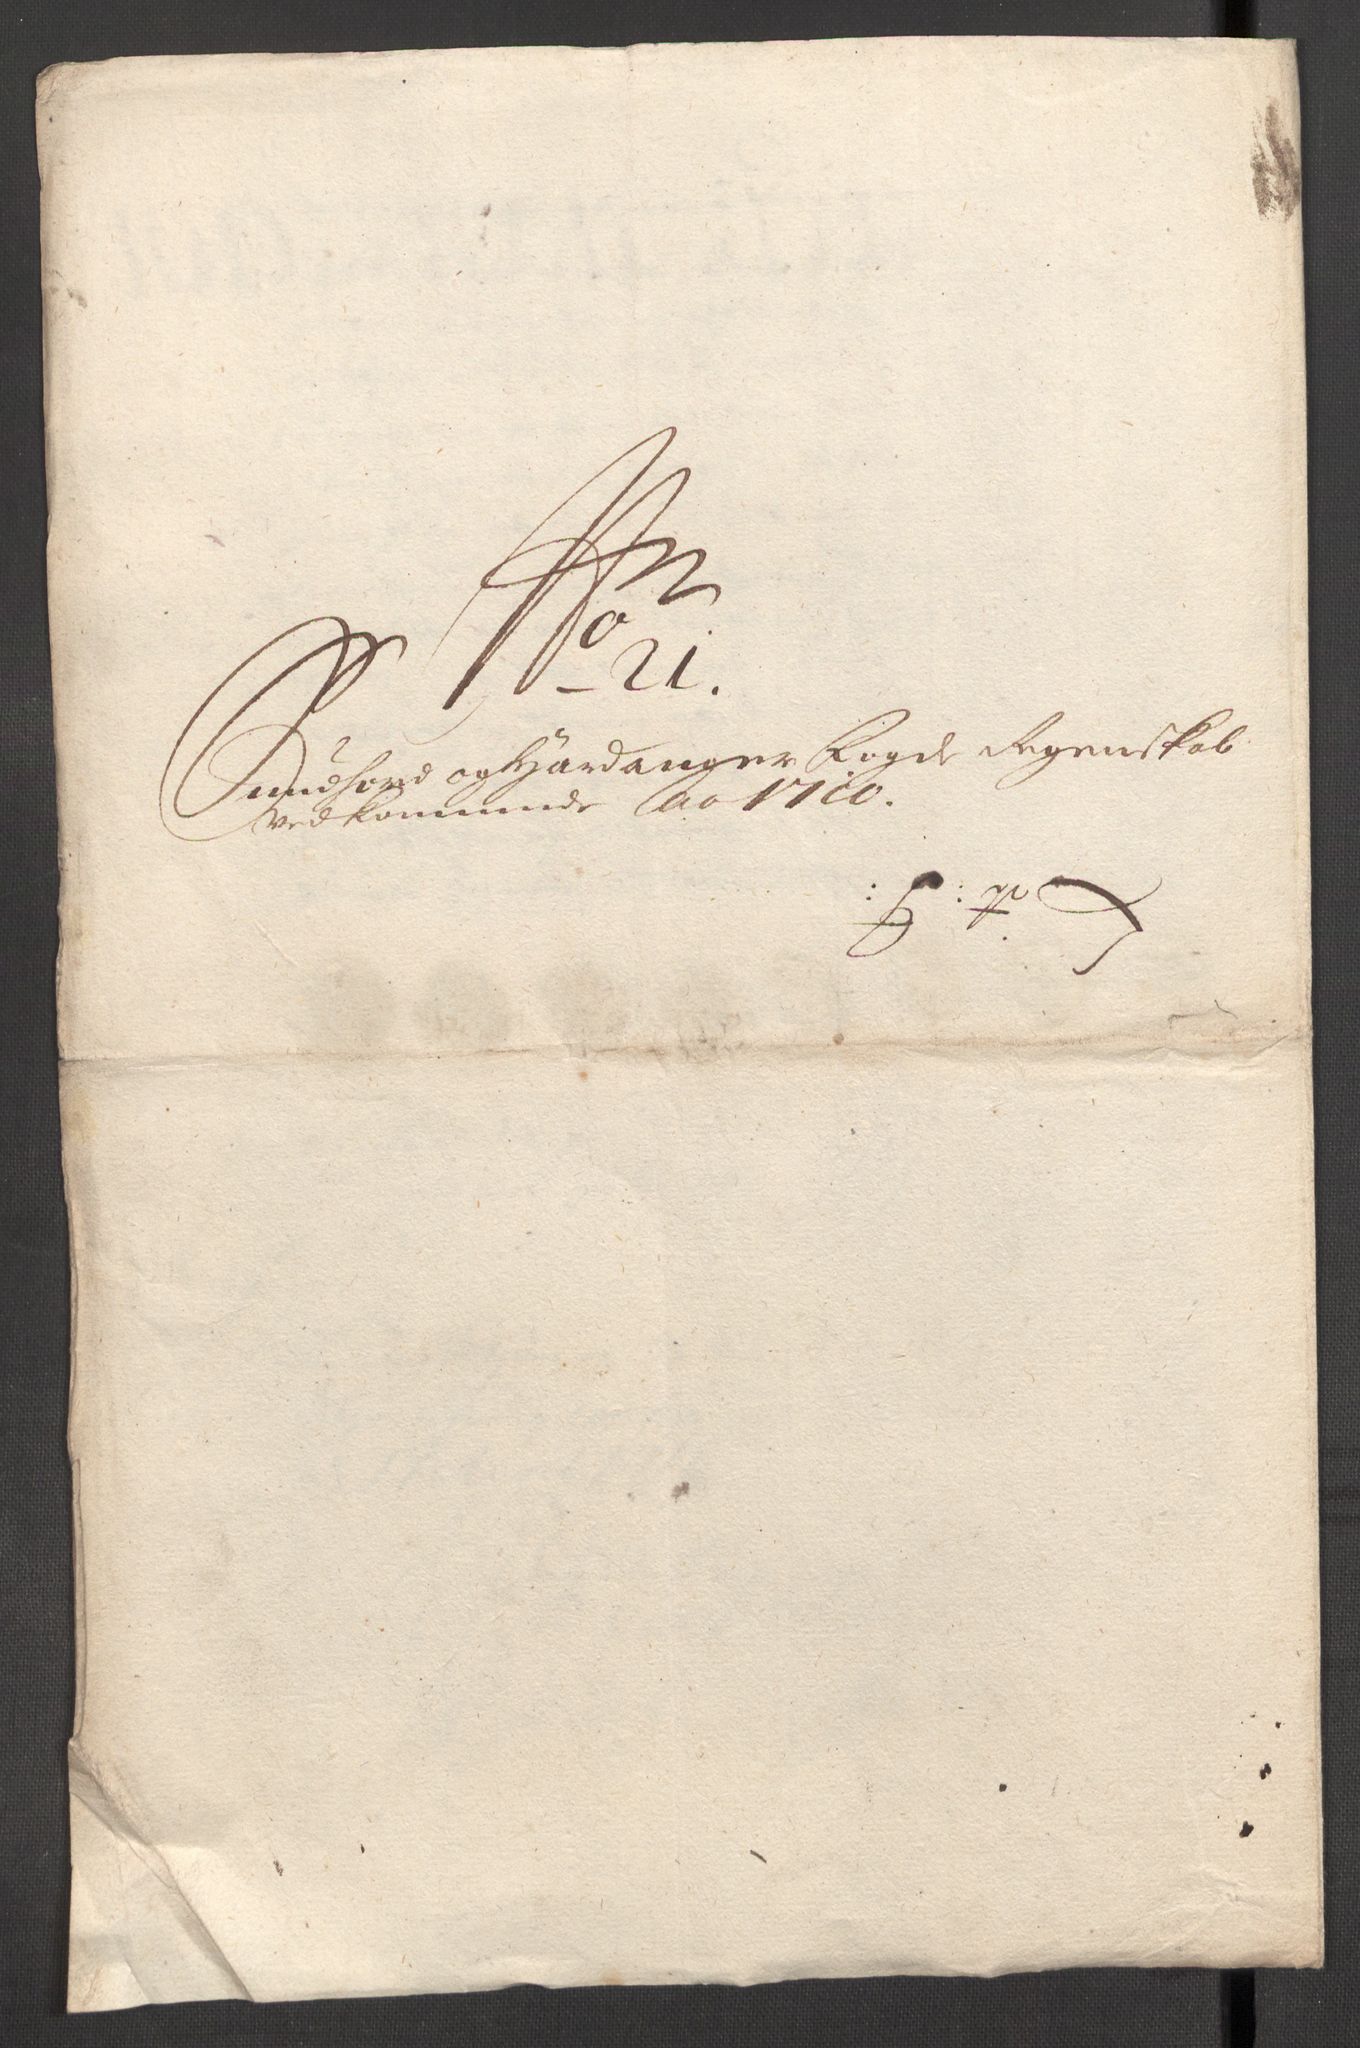 No
21.
Sundhord og Hardanger Fogde Regenskab
vedkommende Ao 1710.